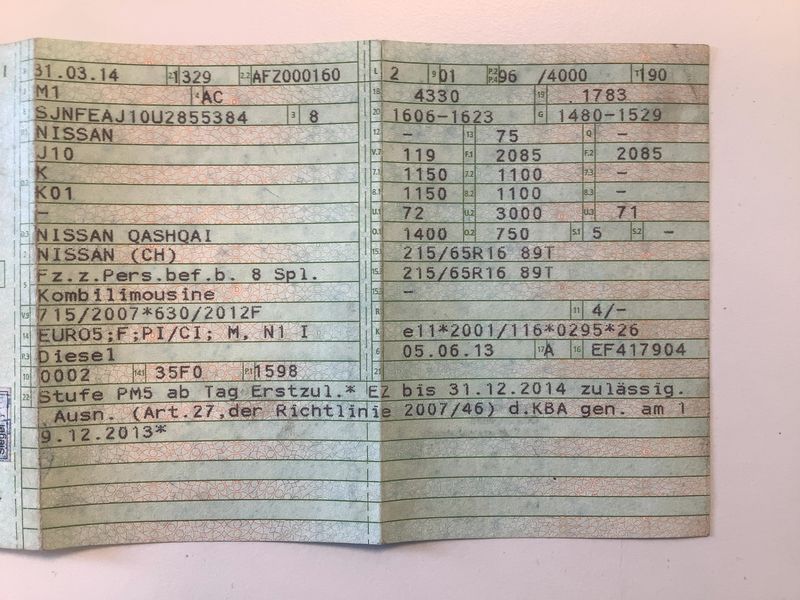 31.03.14 2.1 1329 2.2 AFZ000160
M1 4 AC
SJNFEAJ10U2855384 3 8
NISSAN
J10
K
K01
–
D.3 NISSAN QASHQAI
2 NISSAN (CH)
5 Fz.z.Pers.bef.b. 8 Spl.
Kombilimousine
V.9 715/2007*630/2012F
14 EURO5;F;PI/CI; M, N1 I
P.3 Diesel
10 0002 14.1 35F0 P.1 1598
L 2 9 01 P.2 P.4 96 /4000 T 190
18 4330 19 1783
20 1606-1623 G 1480-1529
12 – 13 75 Q –
V.7 119 F.1 2085 F.2 2085
7.1 1150 7.2 1100 7.3 –
8.1 1150 8.2 1100 8.3 –
U.1 72 U.2 3000 U.3 71
O.1 1400 O.2 750 S.1 5 S.2 –
15.1 215/65R16 89T
15.2 215/65R16 89T
15.3 –
R 11 4/-
K e11*2001/116*0295*26
6 05.06.13 17 A 16 EF417904
21
22 Stufe PM5 ab Tag Erstzul.* EZ bis 31.12.2014 zulässig.
Ausn. (Art.27,der Richtlinie 2007/46) d.KBA gen. am 1
9.12.2013*